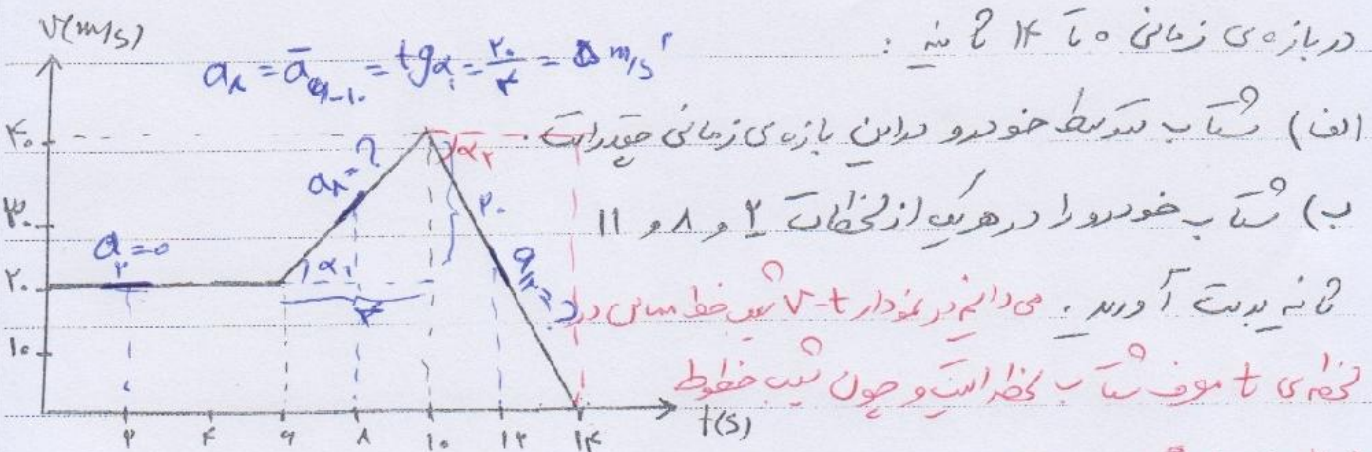 در بازه‌ی زمانی ۰ تا ۱۴ ثانیه :
الف) شتاب متوسط خودرو در این بازه‌ی زمانی چقدر است.
ب) شتاب خودرو را در هر یک از لحظات ۲ و ۸ و ۱۱
ثانیه بدست آورید. می‌دانیم در نمودار v-t شیب خط مماس در
لحظه‌ی t معرف شتاب لحظه‌ایست و چون شیب خطوط
v(m/s)
a۸ = ā۶-۱۰ = tgα۱ = ۲۰/۴ = ۵ m/s۲
۴۰
۳۰
۲۰
۱۰
a۲=۰
a۸=?
α۱
۴
۲۰
α۲
a۱۲=?
۲ ۴ ۶ ۸ ۱۰ ۱۲ ۱۴
t(s)